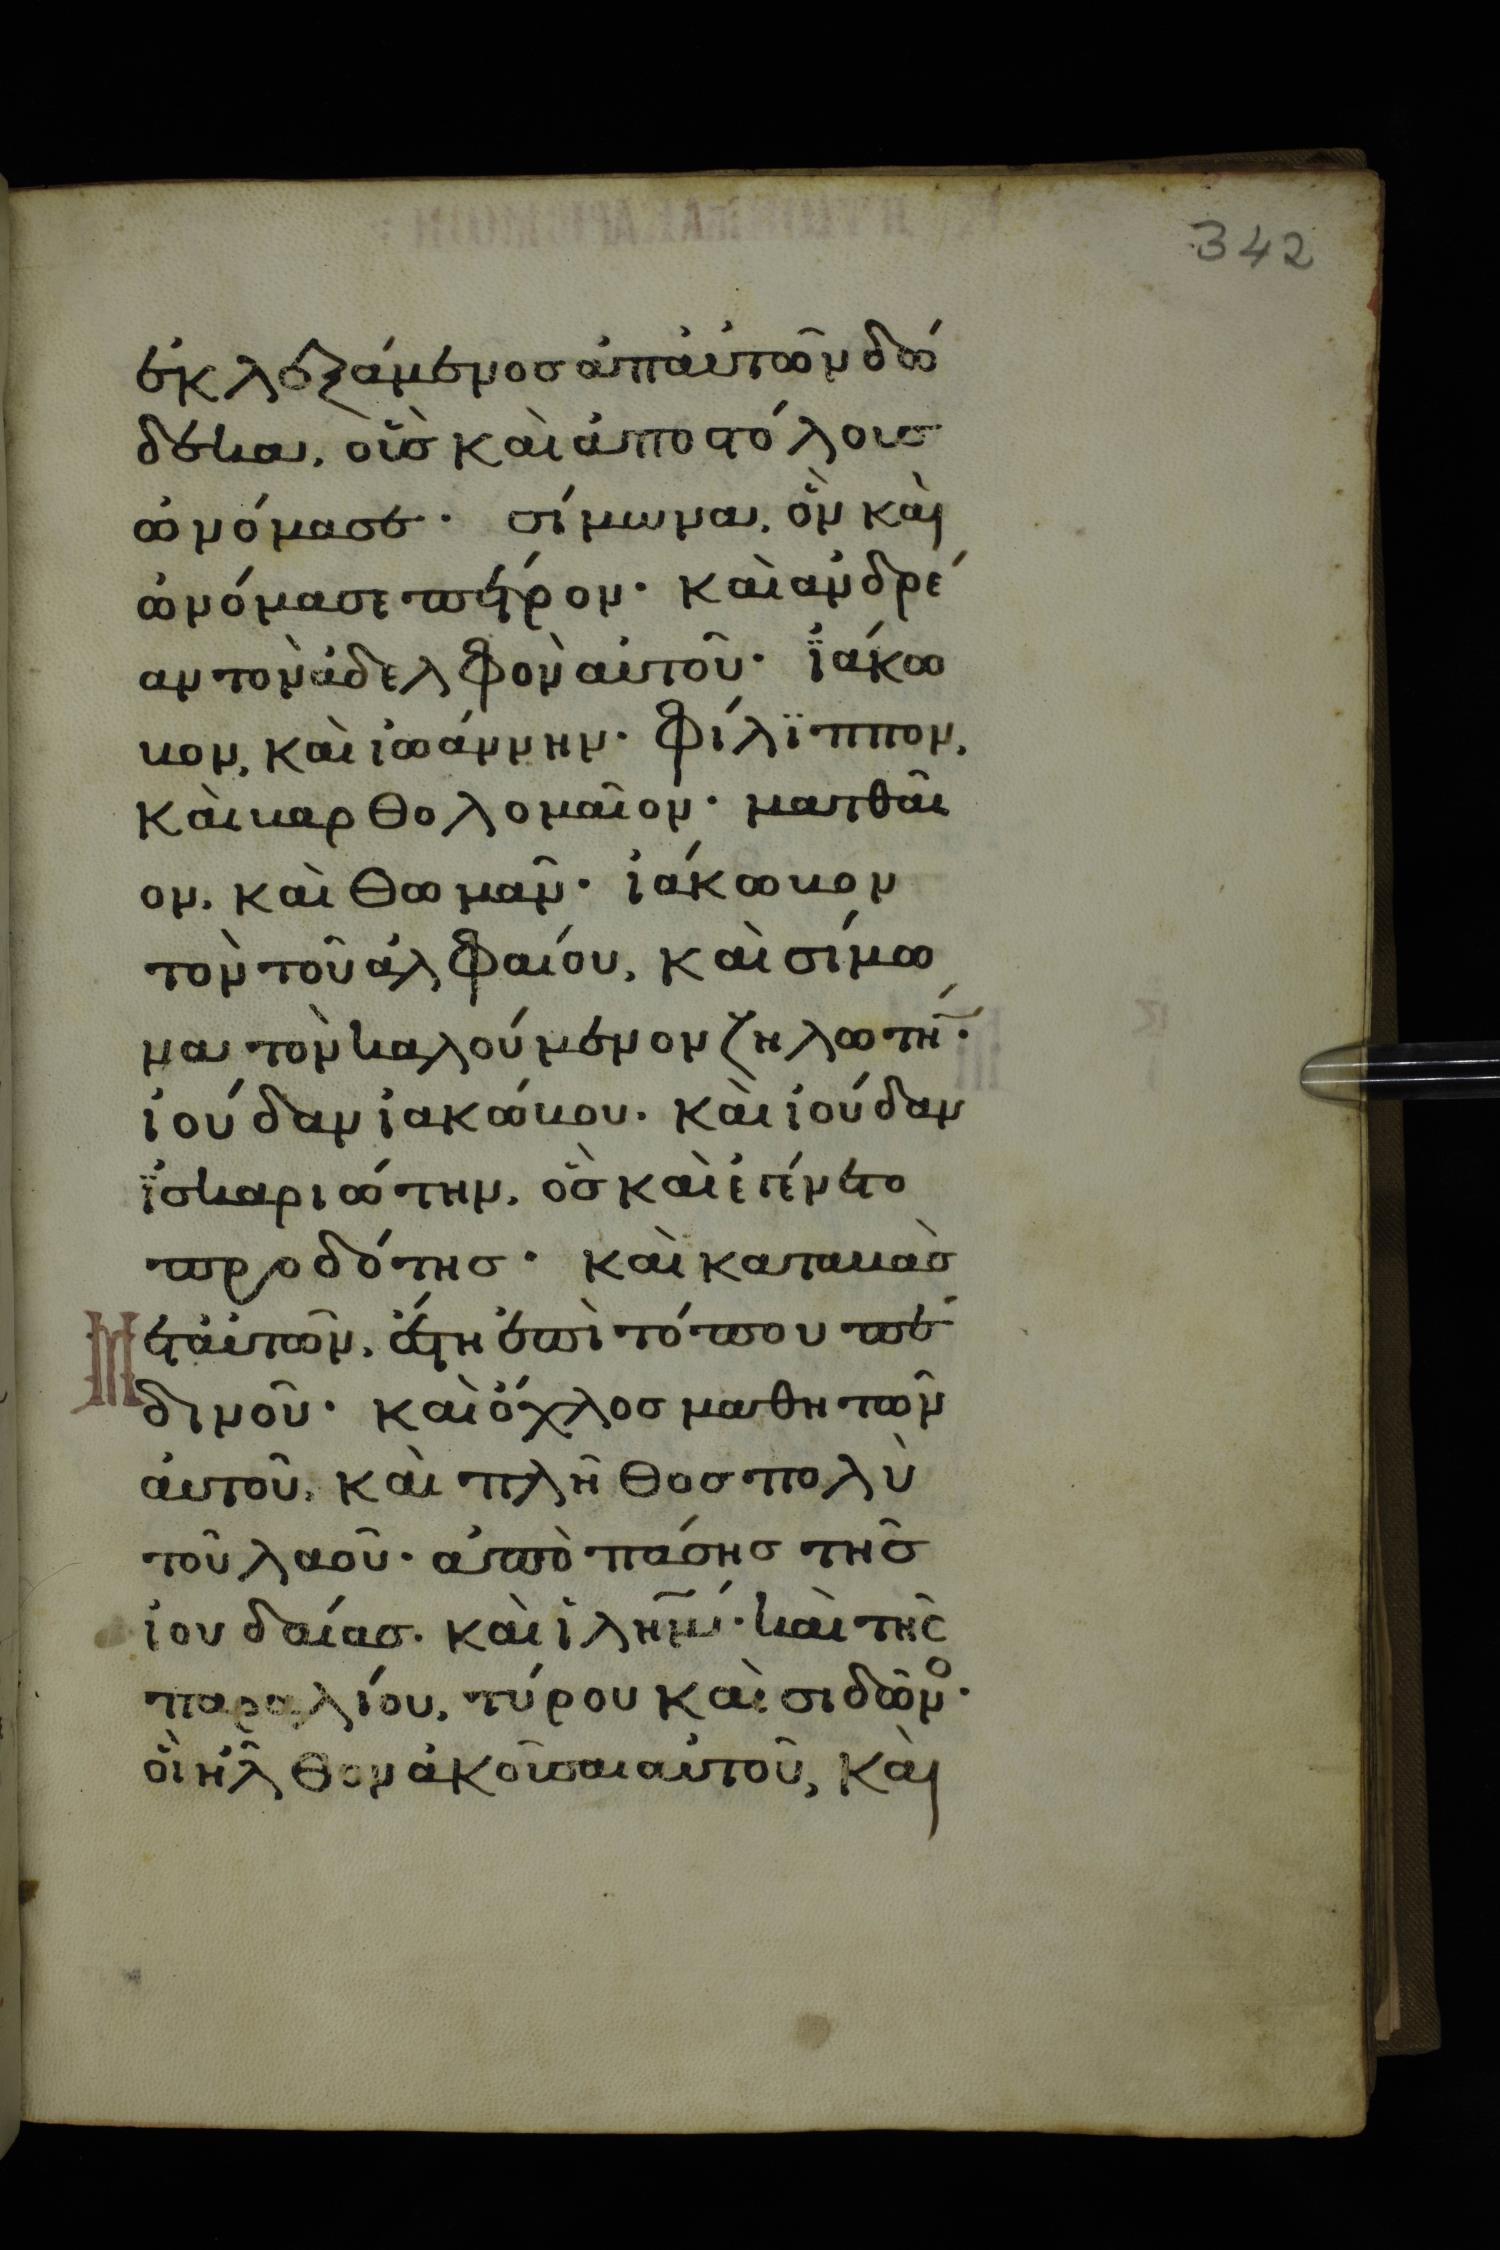 342
ἐκλεξάμενος ἀπ αὐτῶν δώ
δεκα, οὓς καὶ ἀποστόλους
ὠνόμασε· σίμωνα, ὃν καὶ
ὠνόμασε πέτρον· καὶ ἀνδρέ
αν τὸν ἀδελφὸν αὐτοῦ· ἰάκω
βον, καὶ ἰωάννην· φίλιππον,
καὶ βαρθολομαῖον· ματθαῖ
ον, καὶ θωμᾶν· ἰάκωβον
τὸν τοῦ ἀλφαίου, καὶ σίμω
να τὸν καλούμενον ζηλωτή̄·
ἰούδαν ἰακώβου. καὶ ἰούδαν
ἰσκαριώτην, ὃς καὶ ἐγένετο
προδότης· καὶ καταβὰς
μετ αὐτῶν, ἔστη ἐπὶ τόπου πε
δινοῦ· καὶ ὄχλος μαθητῶν
αὐτοῦ, καὶ πλῆθος πολὺ
τοῦ λαοῦ· ἀπὸ πάσης τῆς
ἰουδαίας. καὶ ἰλη̄μ· καὶ τῆς
παραλίου, τύρου καὶ σιδῶνο·
οἳ ἦλθον ἀκοῦσαι αὐτοῦ, καὶ